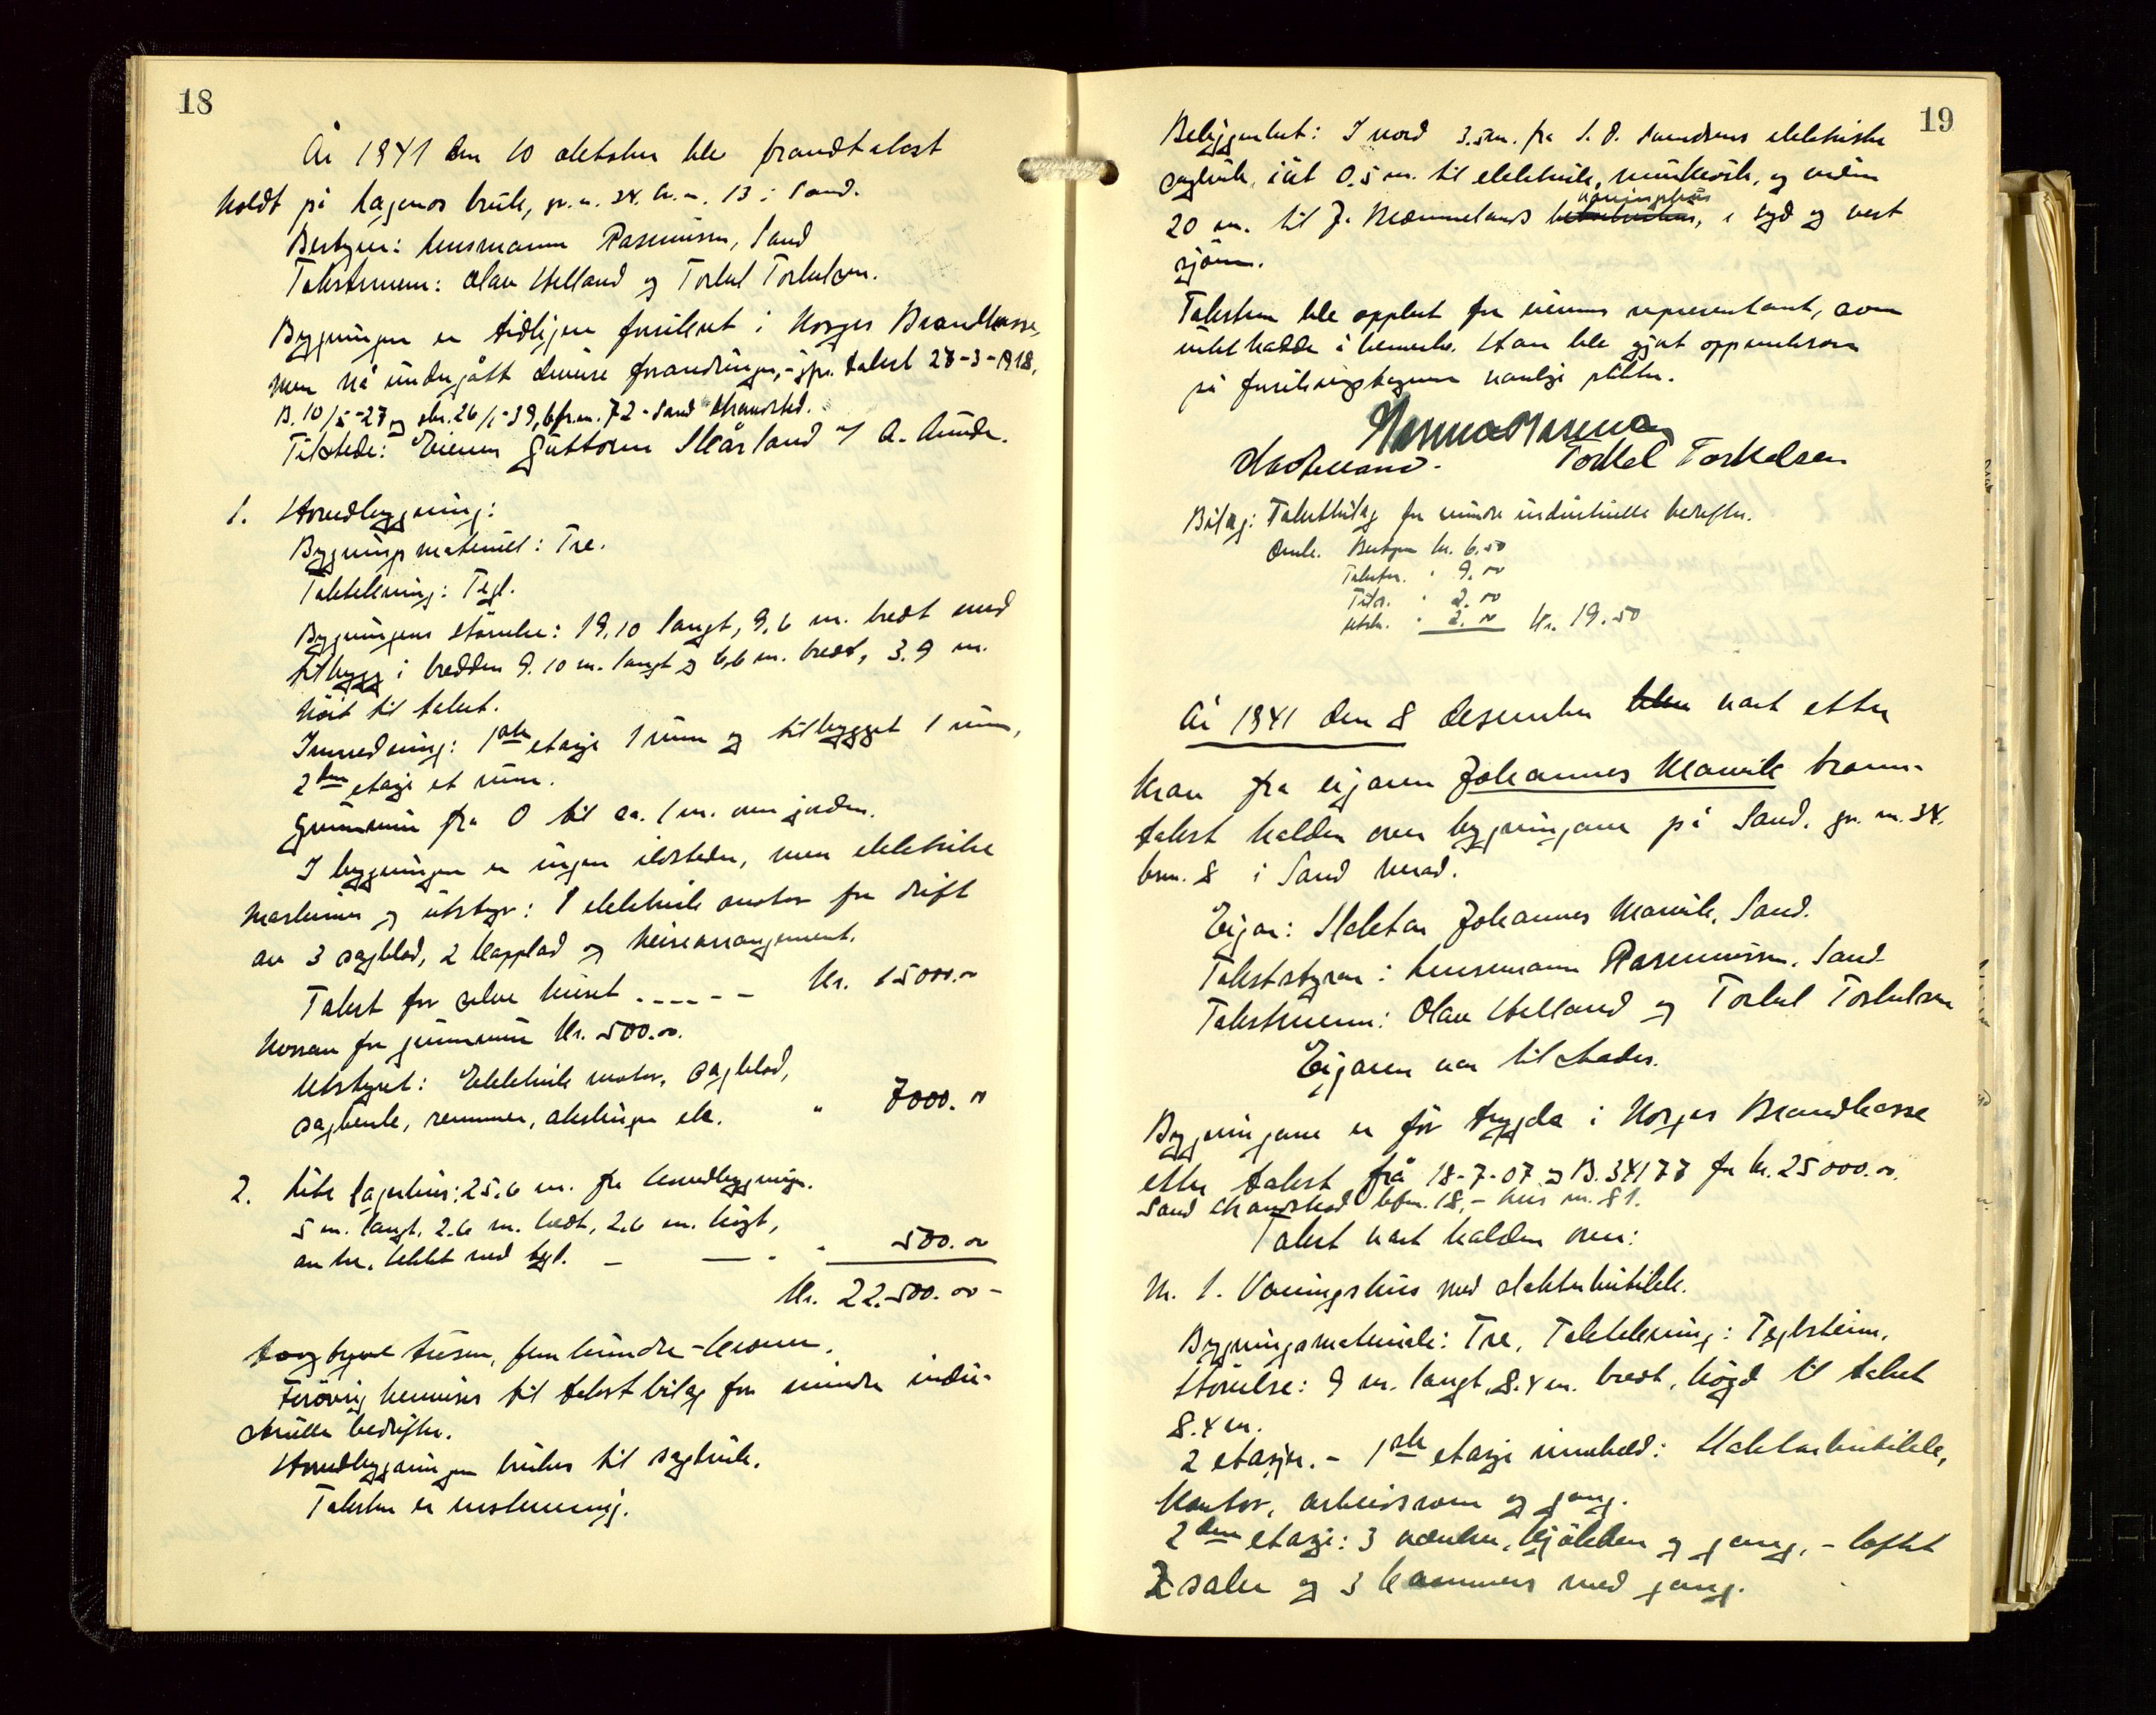 18
År 1941 den 10 oktober ble brandtakst
holdt på Lagenos bruk, gr.n. 34, br.n. 13 i Sand.
Bestyrer: Lensmann Rasmussen, Sand
Takstmenn: Olav Helland og Torkel Torkelsen.
Bygningen er tidligere forsikret i Norges Brandkasse,
men nå undergått diverse forandringer, - jfr. takst 28-3-1918,
B. 10/5-27 og skr. 26/1-39, bfr.n. 72 - Sand strandsted.
Tilstede: Eieren Guttorm Skårland v/ A. Aunde.
1. Hovedbygning:
Bygningsmateriel: Tre.
Taktekning: Tegl.
Bygningens størrelse: 19,10 langt, 9,6 m. bredt med
tilbygg i bredden 9.10 m. langt og 6,6 m. bredt, 3.9 m.
höit til taket.
Innredning: 1ste etasje 1 rum og tilbygget 1 rum,
2den etasje et rum.
Grunnmur fra 0 til ca. 1 m. over jorden.
I bygningen er ingen ildsteder, men elektriske
maskiner og utstyr: 1 elektrisk motor for drift
av 3 sagblad, 2 kappblad og heisearrangement.
Takst for selve huset - - - - - - kr. 15000.00
Herav for grunnmur kr. 500.00.
Utstyret: Elektrisk motor, sagblad,
sagbenk, remmer, akslinger etc. " 7000.00
2. Lite lagerhus: 25.6 m. fra hovedbygningen.
5 m. langt, 2.6 m. bredt, 2.6 m. högt,
av tre, tekket med tegl. — — " " 500.00
Kr. 22.500.00 -
toogtyve tusen, fem hundre - kroner.
Forøvrig henvises til takstbilag for mindre indu-
strielle bedrifter.
Hovedbygningen brukes til sagbruk.
Taksten er enstemmig.
19
Beliggenhet: I nord 3.5 m. fra S. O. Sandsens elektriske
sagbruk, i øst 0.5 m. til elektrisk, og videre
20 m. til J. Mæmelands våningshus, i syd og vest
sjøen.
Taksten ble opplest for eierens representant, som
intet hadde å bemerke. Han ble gjort oppmerksom
på forsikringstagerens vanlige plikter.
Olav Helland. Torkel Torkelsen
Bilag: Takstbilag for mindre industrielle bedrifter.
Omk. Bestyrer kr. 6.50
Takstm. " 9.00
" 2.00
Utskr. " 2.00 Kr. 19.50
År 1941 den 8 desember vart etter
krav fra eigaren Johannes Marvik brann-
takst halden over bygningane på Sand, gr. nr. 34,
brn. 8 i Sand herad.
Eigar: Slaktar Johannes Marvik, Sand.
Takststyrar: Lensmann Rasmussen, Sand
Takstmenn: Olav Helland og Torkel Torkelsen
Eigaren var til stades.
Bygningane er før trygda i Norges Brandkasse
etter takst frå 18-7-07 og B. 34177 for kr. 25000.00.
Sand strandstad bfnr. 18, - hus nr. 81.
Takst vart halden over:
Nr. 1. Våningshus med slakterbutikk.
Bygningsmateriale: Tre, Taktekning: Teglstein.
Størrelse: 9 m. langt, 8.4 m. bredt, högd til taket
8.4 m.
2 etasjer. - 1ste etasje inneheld: Slaktarbutikk,
kontor, arbeidsrom og gang.
2den etasje: 3 værelser, kjökken og gang, - loftet
2 saler og 3 kammers med gang.